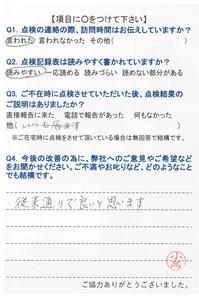 【項目に○をつけて下さい】
Q1. 点検の連絡の際、訪問時間はお伝えしていますか？
言われた 言われなかった その他( )
Q2. 点検記録表は読みやすく書かれていますか？
読みやすい 一応読める 読みづらい 読めない部分がある
Q3. ご不在時に点検させていただいた後、点検結果の
ご説明はありましたか？
直接報告に来た 電話で報告があった 何もなかった
他( いつも居ます )
※ご在宅時に点検をさせて頂いている場合は無回答で結構です。
Q4. 今後の改善の為に、弊社へのご意見やご希望など
をお聞かせください。ご不満やお叱りなど、どのようなこと
でも結構です。
従来通りで良いと思います
ご協力ありがとうございました。